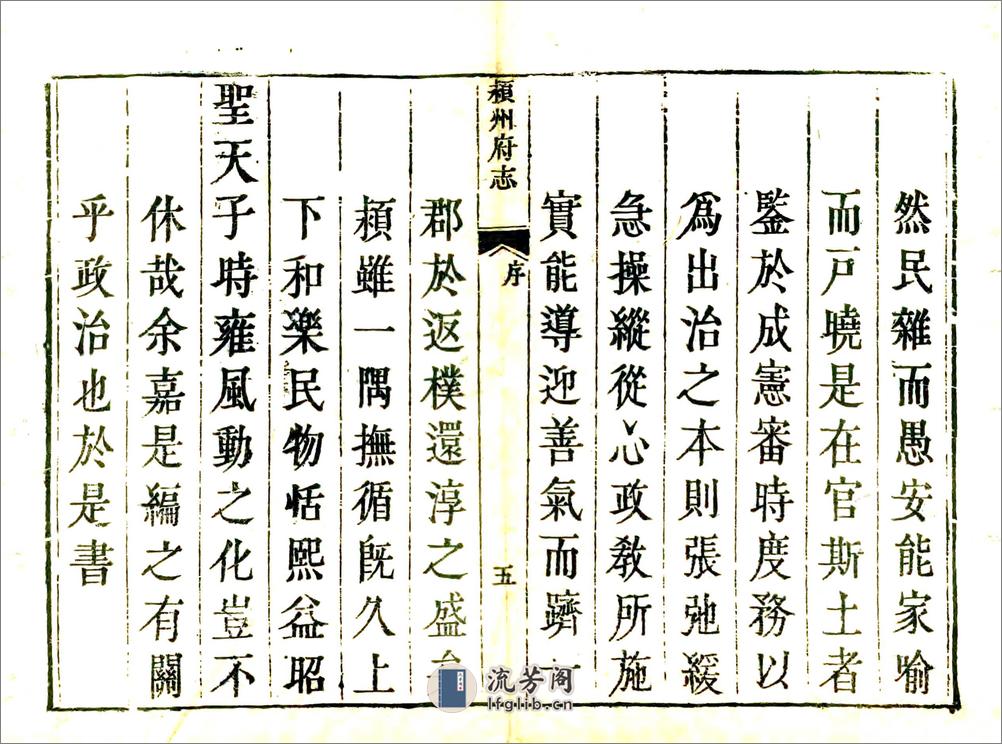 然民雜而愚安能家喻
而戸曉是在官斯土者
鍳於成憲審時度務以
爲出治之本則張弛緩
急操縱從心政敎所施
實能導迎善氣而躋
潁州府志
序
五
郡於返樸還淳之盛
潁雖一隅撫循旣久上
下和樂民物恬熙益昭
聖天子時雍風動之化豈不
休哉余嘉是編之有關
乎政治也於是書
流芳阁
lfglib.cn